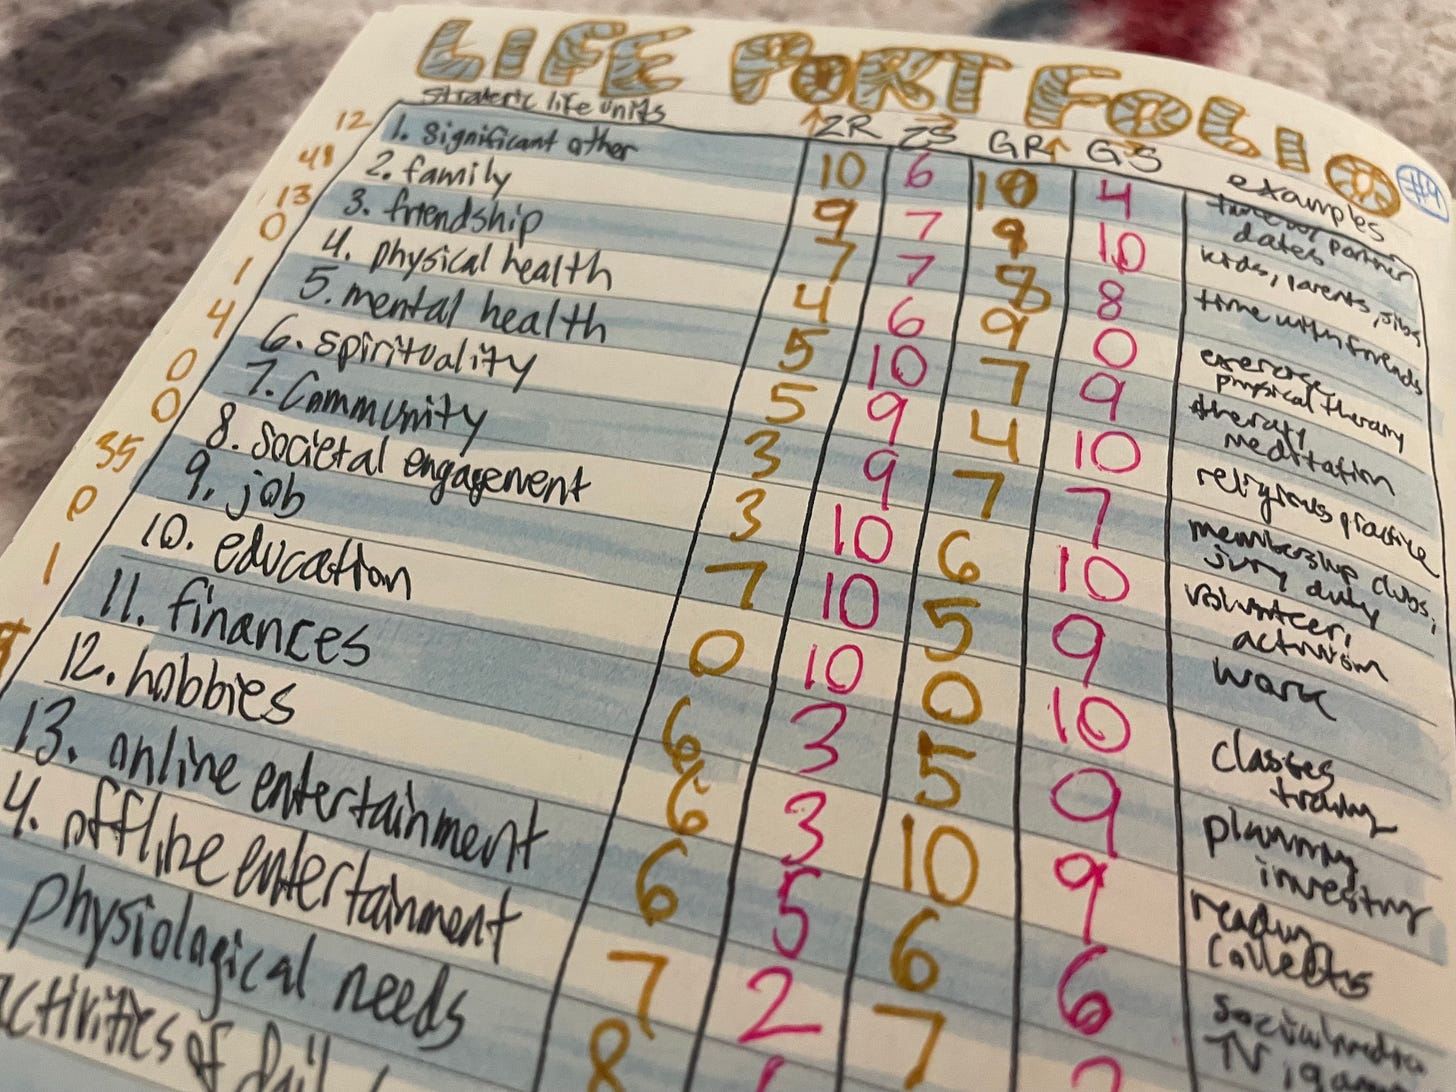 LIFE PORTFOLIO
#9
strategic life units ZR ZS GR GS examples
12 1. significant other 10 6 10 4 time w/ partner
dates
48 2. family 9 7 9 10 kids, parents, sibs
13 3. friendship 7 7 8 8 time with friends
0 4. physical health 4 6 9 0 exercise,
physical therapy
1 5. mental health 5 10 7 9 therapy
meditation
4 6. spirituality 5 9 4 10 religious practice
0 7. Community 3 9 7 7 membership clubs,
jury duty
0 8. societal engagement 3 10 6 10 volunteer,
activism
35 9. job 7 10 5 9 work
0 10. education 0 10 0 10 classes
training
1 11. finances 6 3 5 9 planning
investing
12. hobbies 6 3 10 9 reading
collects
13. online entertainment 6 5 6 6 social media
TV
4. offline entertainment 7 2 7
physiological needs 8
activities of